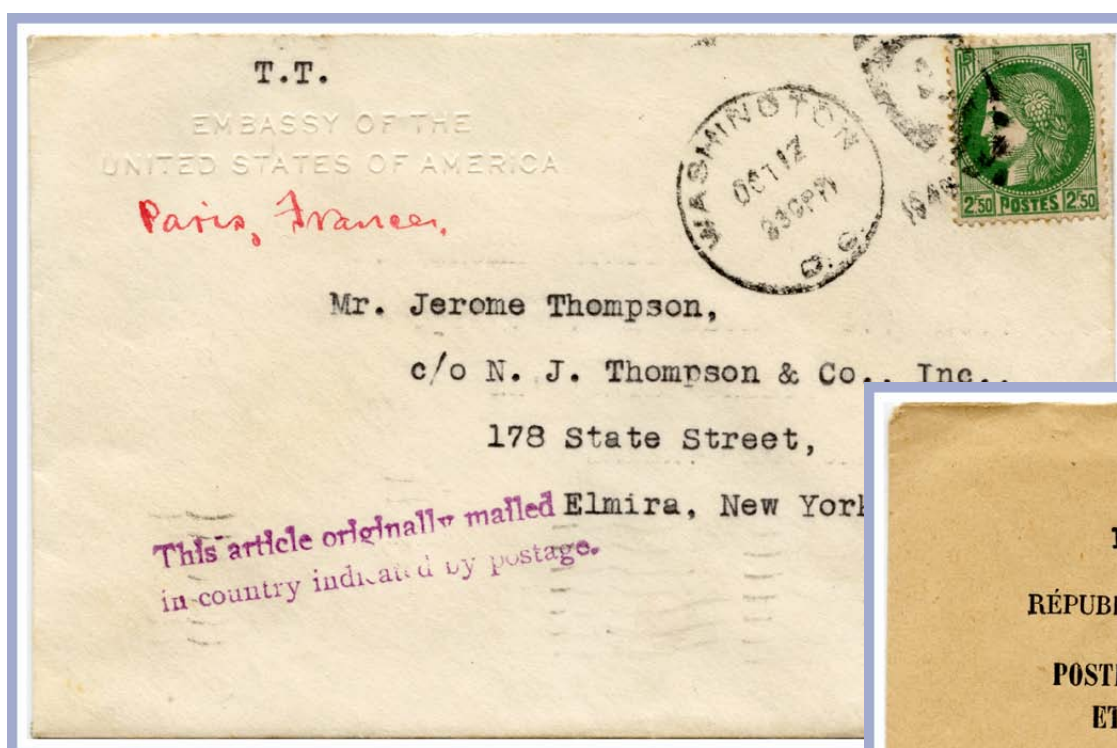 T.T.
EMBASSY OF THE
UNITED STATES OF AMERICA
Paris, France.
WASHINGTON
OCT 12
830PM
D.C.
2F50 POSTES 2F50
Mr. Jerome Thompson,
c/o N. J. Thompson & Co., Inc.,
178 State Street,
Elmira, New York
This article originally mailed
in country indicated by postage.
RÉPUB
POST
ET